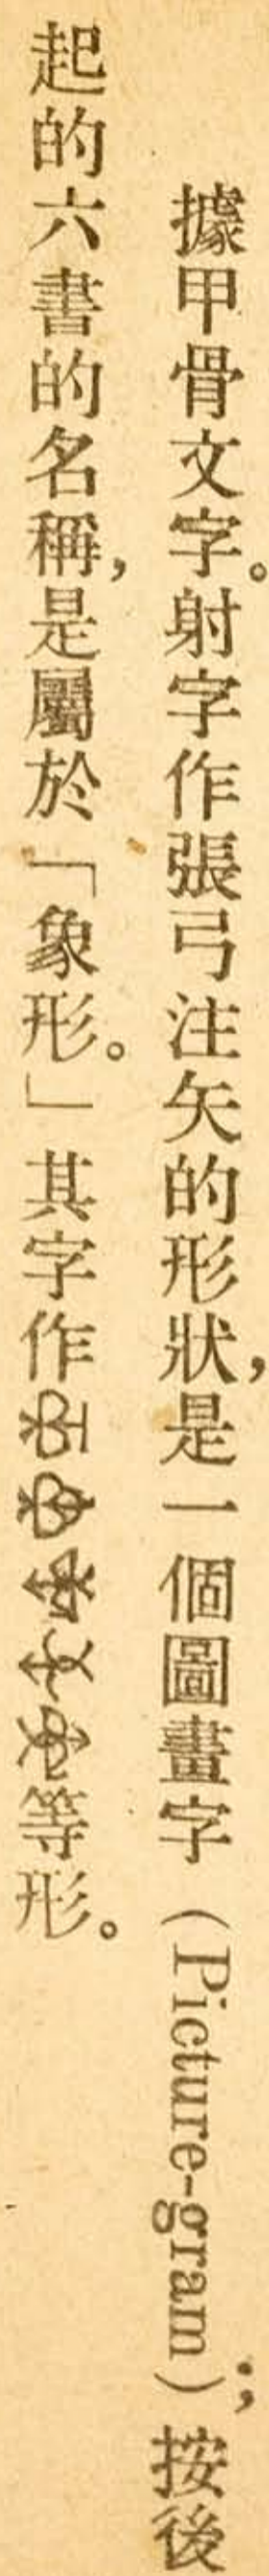 據甲骨文字。射字作張弓注矢的形狀，是一個圖畫字（Picture-gram）；按後
起的六書的名稱，是屬於「象形。」其字作等形。